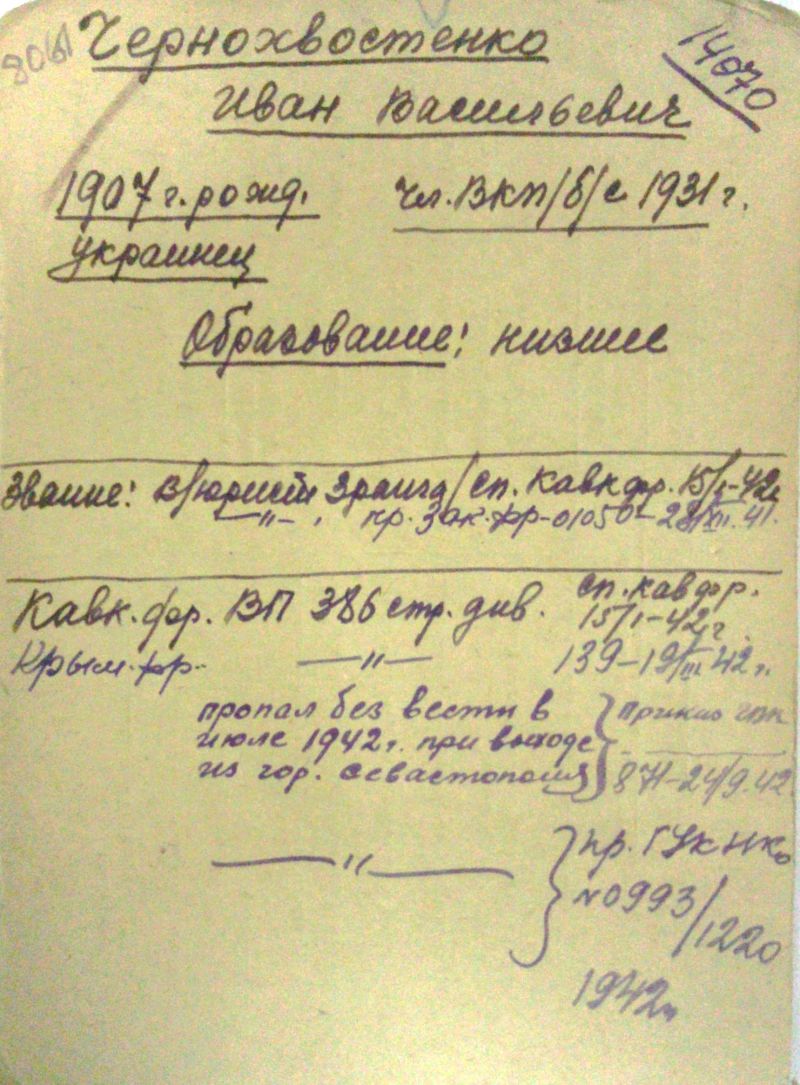 8061
14070
Чернохвостенко
Иван Васильевич
1907 г. рожд. чл. ВКП/б/ с 1931 г.
Украинец
Образование: низшее
Звание: В/юрист 3 ранга/сп. Кавк фр. 15/I-42г
—"— , пр. Зак. фр-01050-28/XII.41.
Кавк. фр. ВП 386 стр. див. сп. кав фр. 15/I-42 г.
Крым. фр. —"— 139-19/III 42 г.
пропал без вести в } Приказ
июле 1942 г. при выходе
из гор. Севастополя } 871-24/9.42
—"— } пр. ГУК НКО
№0993/1220
1942г